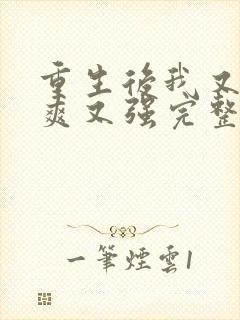 重生後我又
爽又强完整
一筆煙雲1